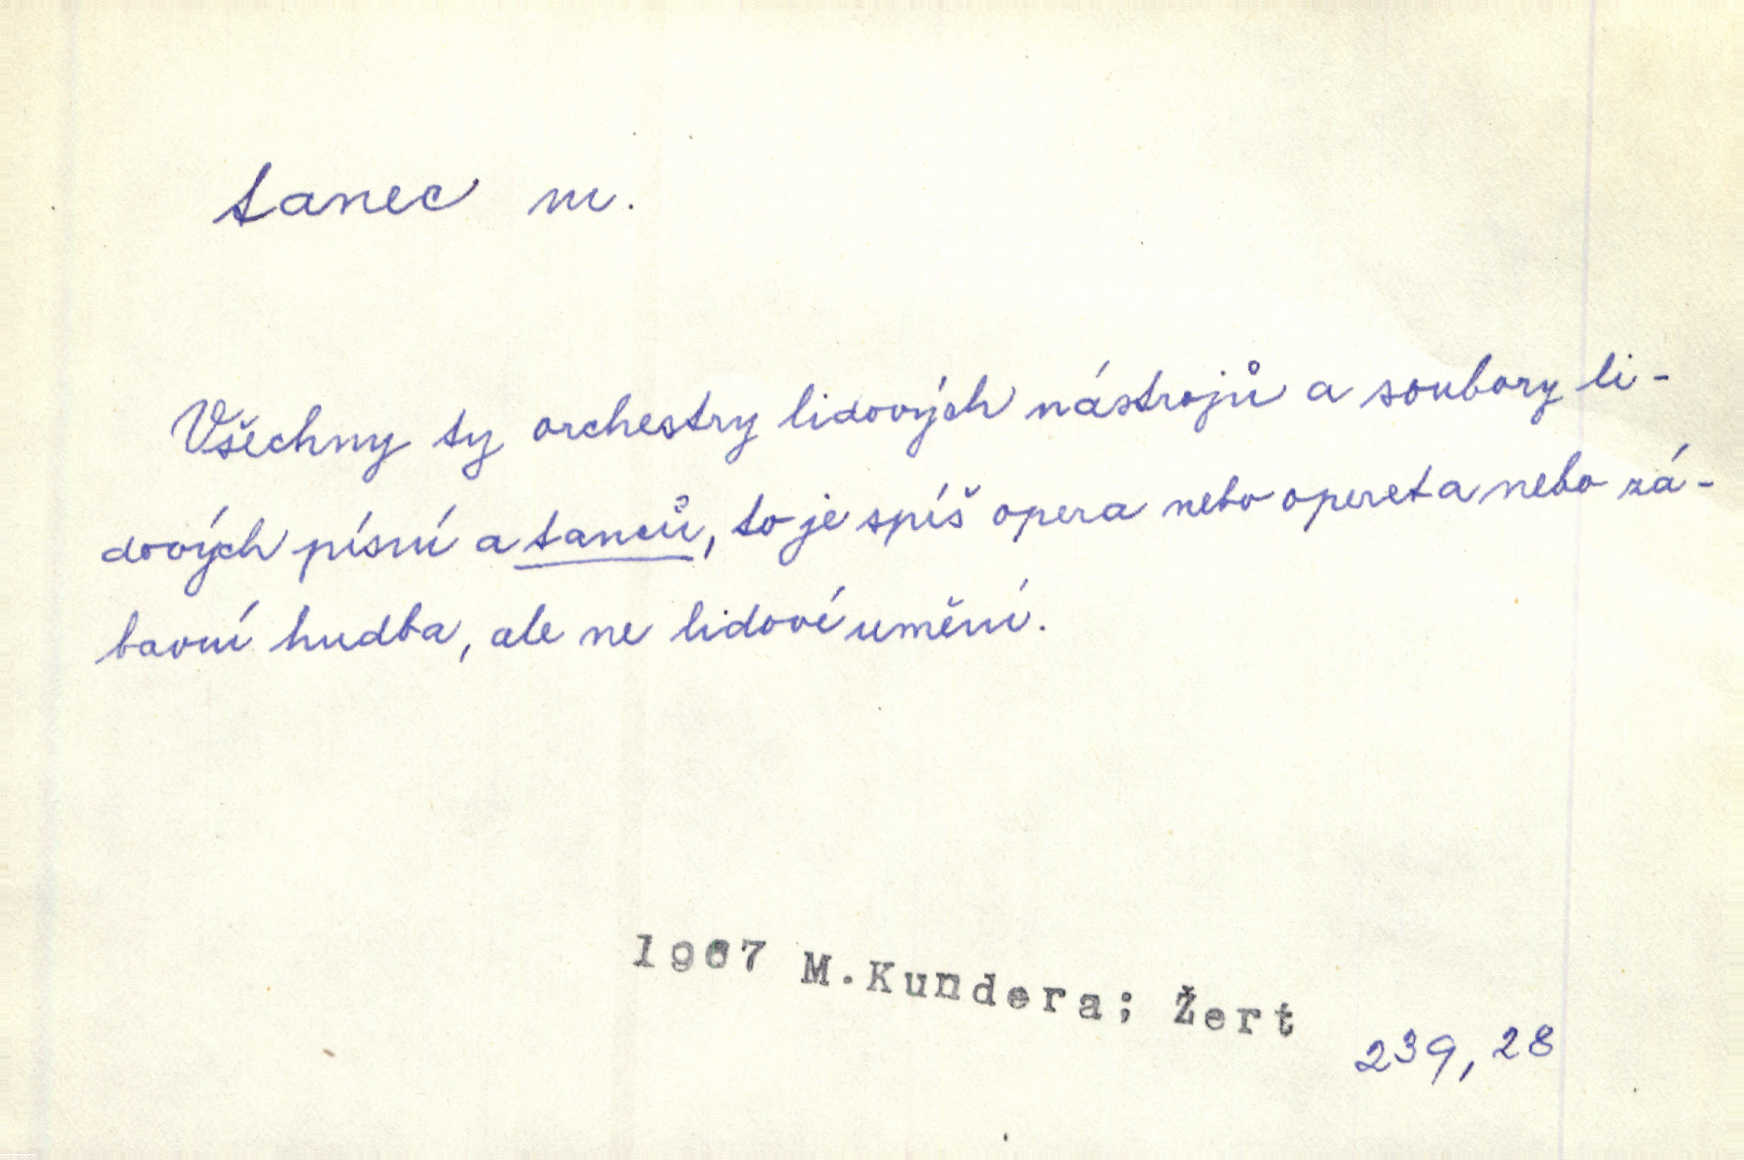 tanec m.
Všechny ty orchestry lidových nástrojů a soubory li-
dových písní a tanců, to je spíš opera nebo opereta nebo zá-
bavní hudba, ale ne lidové umění.
1967 M.Kundera; Žert
239, 28